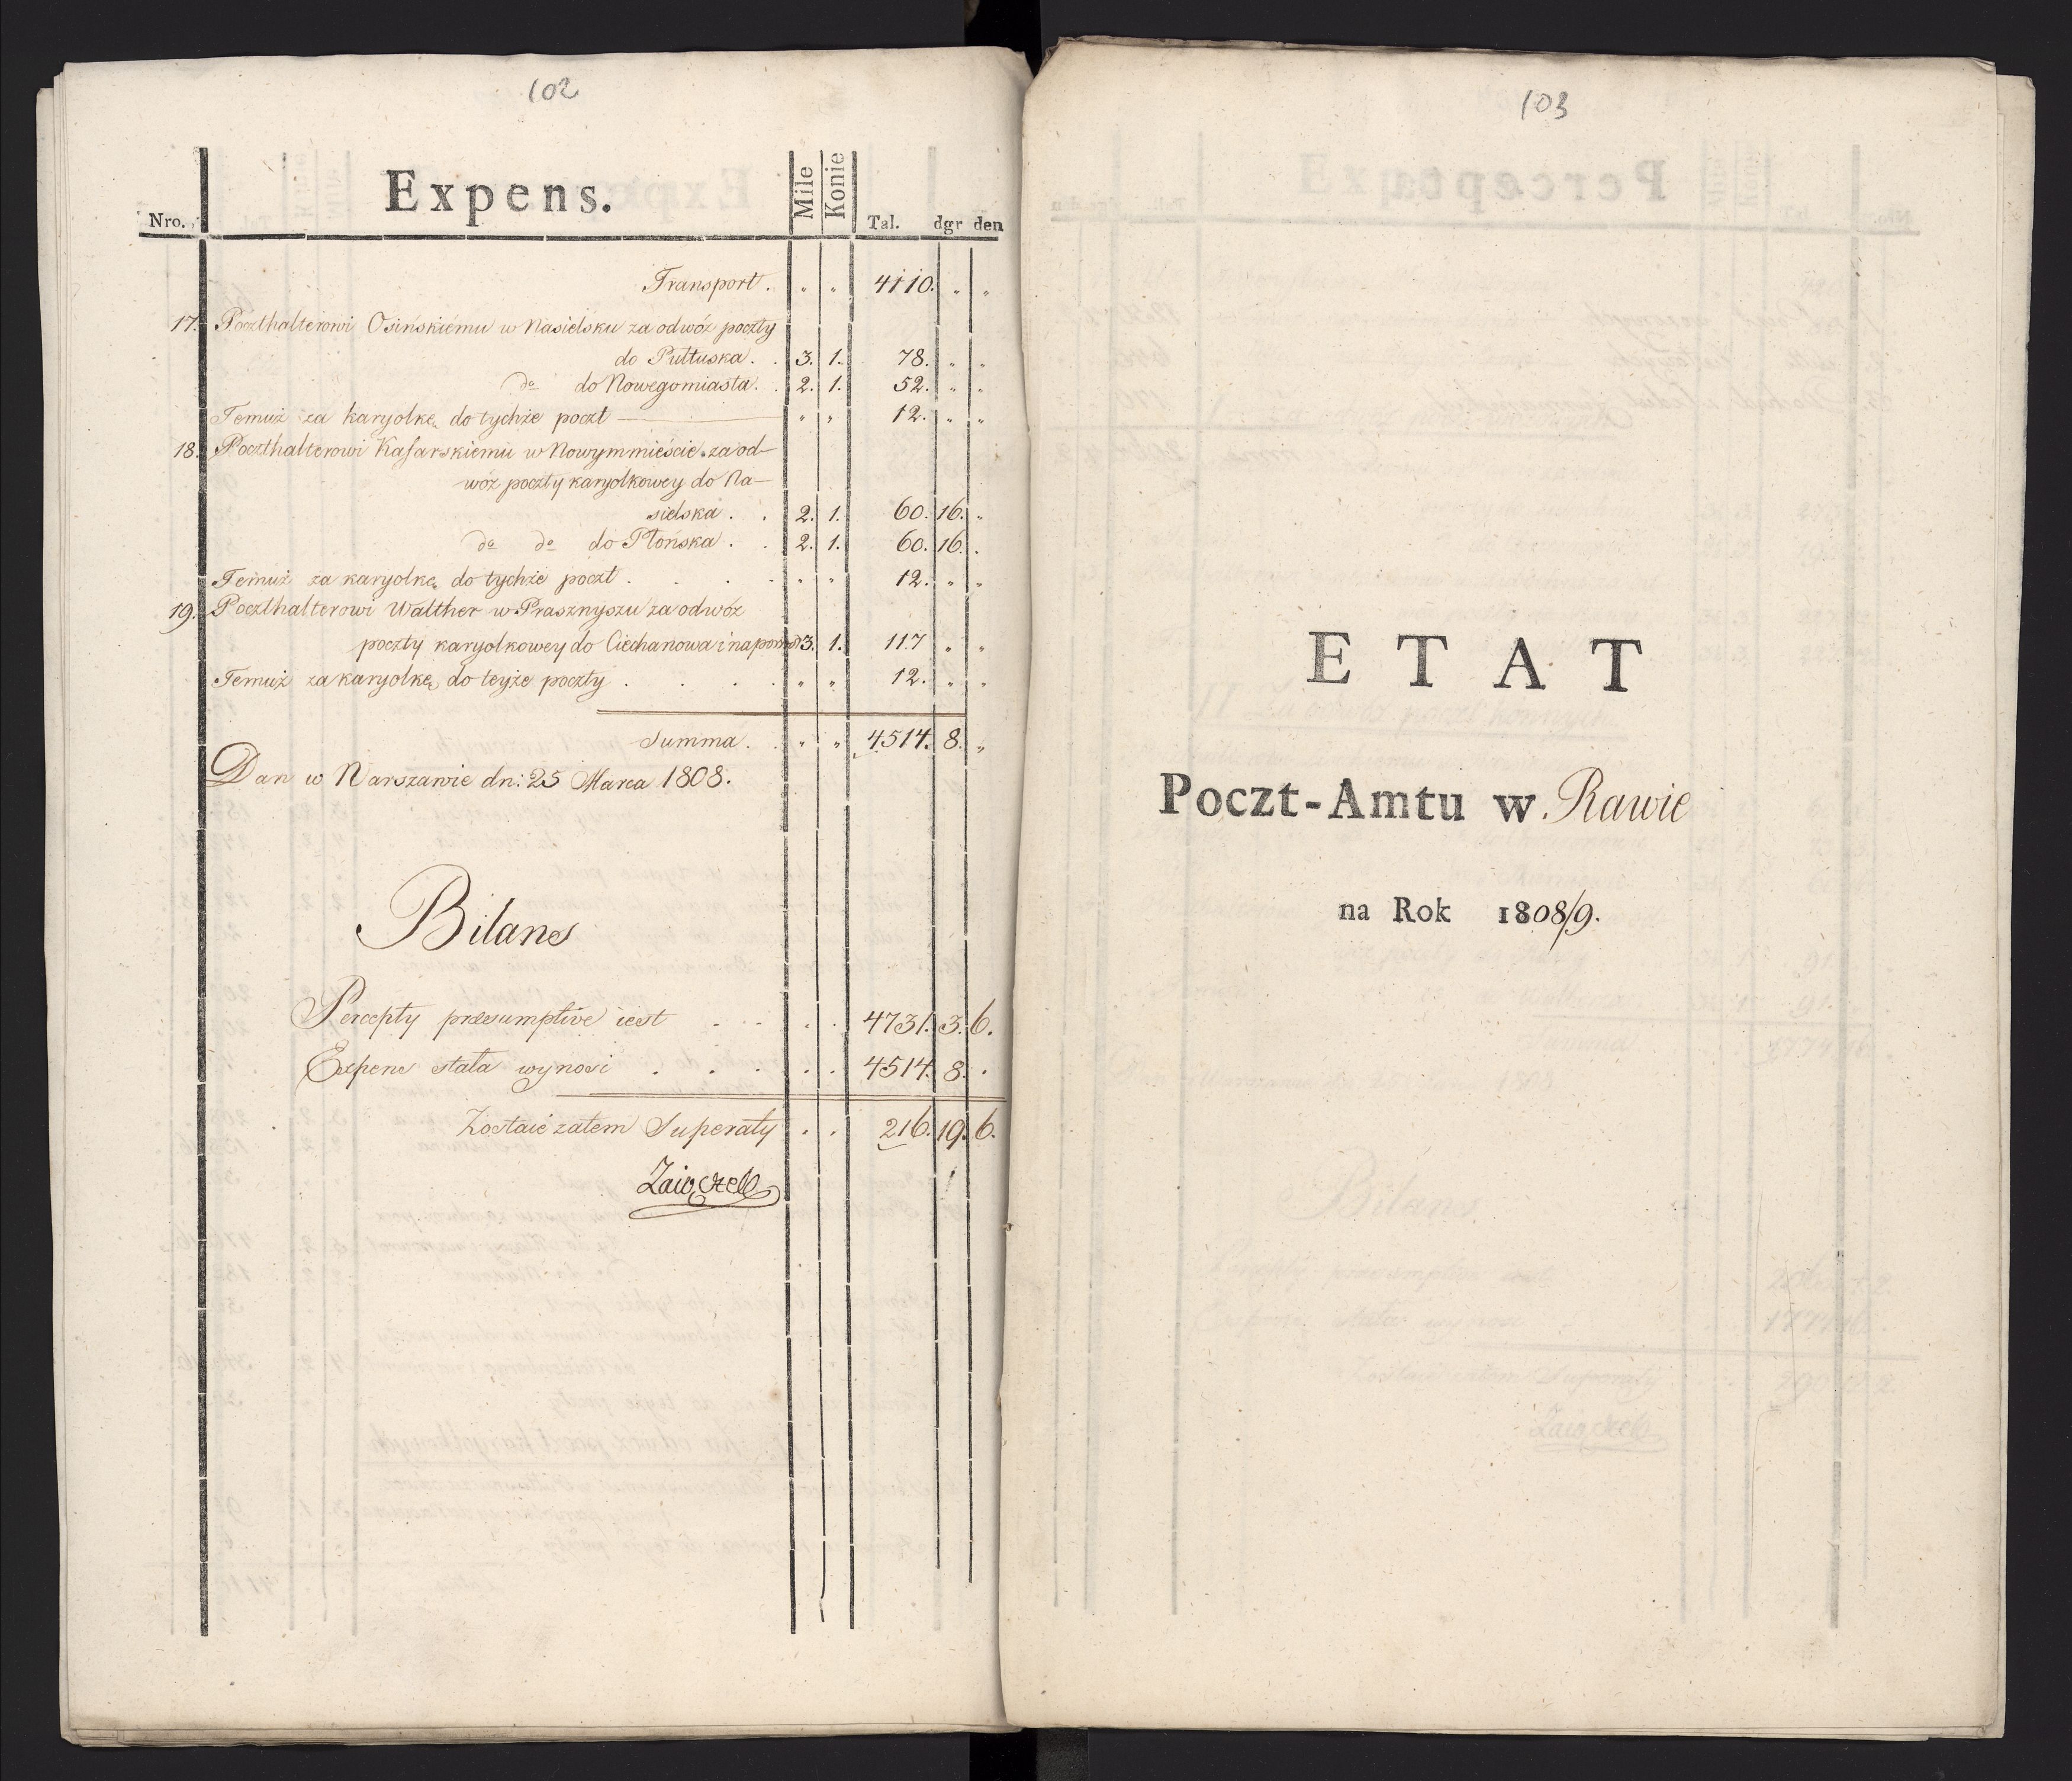 102
Nro. Expens. Mile Konie Tal. dgr den
Transport . " " 4110. " "
17. Poczthalterowi Osińskiému w Nasielsku za odwóz poczty
do Pułtuska . . 3. 1. 78. " "
do do Nowegomiasta . . 2. 1. 52. " "
Temuż za karyolkę do tychże poczt " " 12. " "
18. Poczthalterowi Kasarskiemu w Nowymmieście za od-
wóz poczty karyolkowey do Na-
sielska . . 2. 1. 60. 16. "
do do do Płońska . . 2. 1. 60. 16. .
Temuż za karyolkę do tychże poczt . . . . " " 12. " "
19. Poczthalterowi Walther w Prasznyszu za odwóz
poczty karyolkowey do Ciechanowa i napowrót 3. 1. 117 " "
Temuż za karyolkę do teyże poczty . . . . " " 12. " "
Summa . . " " 4514. 8. "
Dan w Warszawie dn: 25 Marca 1808.
Bilans
Percepty præsumptive iest . . . . . 4731. 3. 6.
Expens stała wynosi . . . . . 4514. 8. .
Zostaie zatem Superaty . . 216. 19. 6.
Zaiączek
103
ETAT
Poczt-Amtu w. Rawie
na Rok 1808/9.